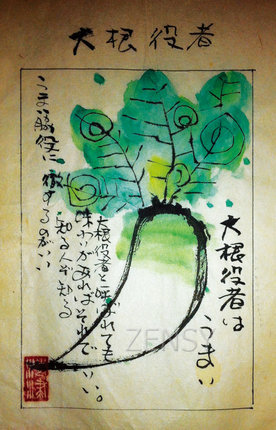 大根役者
大根役者は
うまい
大根役者と呼ばれても
味わいがあればそれでいい。
知る人ぞ知る
うまい脇役に徹するのがいい
ZENSY